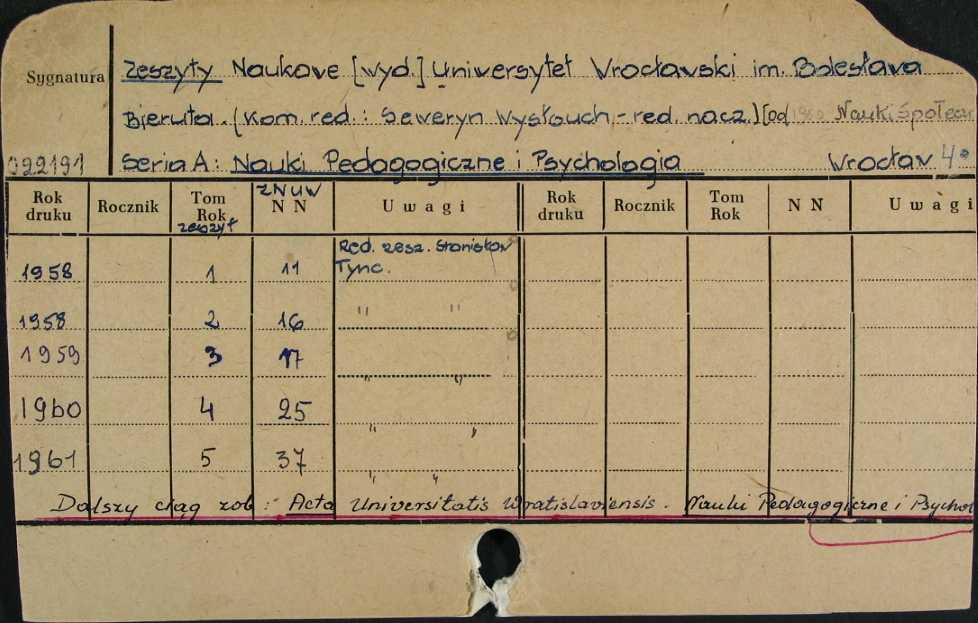 Sygnatura Zeszyty Naukowe [wyd.] Uniwersytet Wrocławski im. Bolesława
Bieruta. (Kom. red. : Seweryn Wysłouch - red. nacz.) [od Nauki Społecz
022191 Seria A : Nauki Pedagogiczne i Psychologia Wrocław 4°
Rok druku Rocznik Tom Rok zeszyt ZNUW N N Uwagi Rok druku Rocznik Tom Rok N N Uwagi
1958 1 11 Red. zesz. Stanisław Tync.
1958 2 16 " "
1959 3 17 " "
1960 4 25 " "
1961 5 37 " "
Dalszy ciąg zob : Acta Universitatis Wratislaviensis. Nauki Pedagogiczne i Psychol